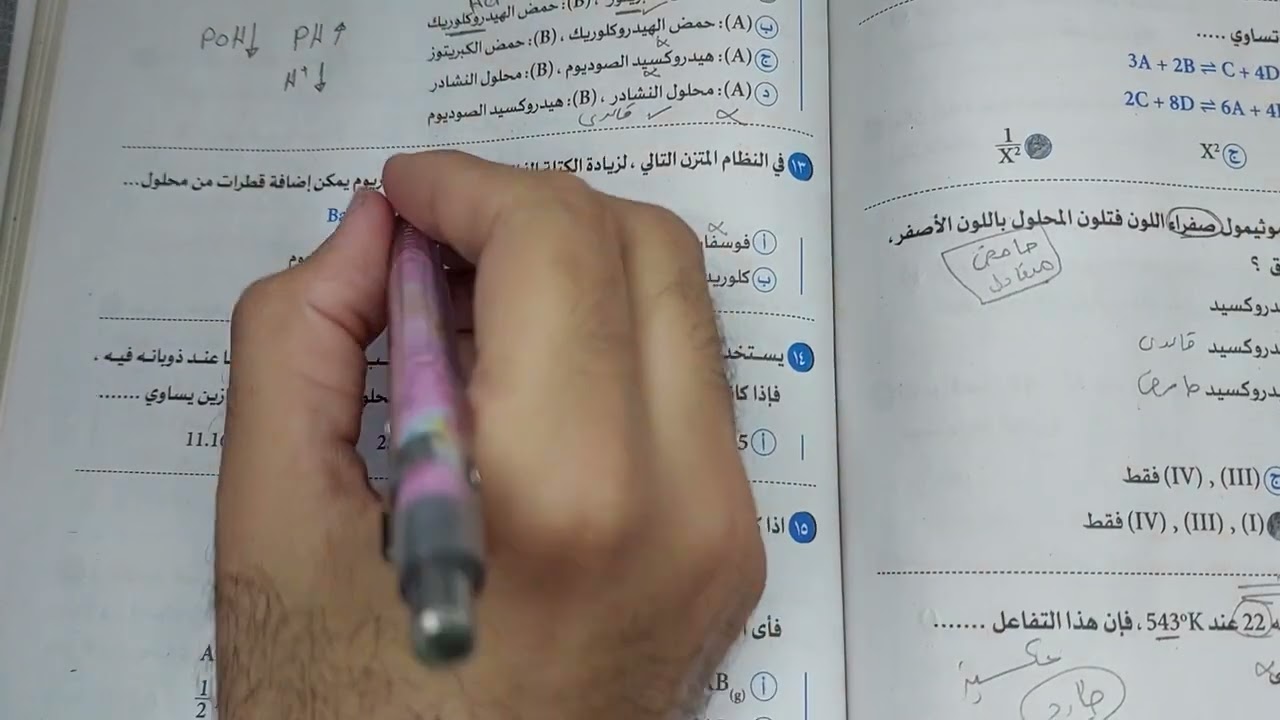 (B): حمض الهيدروكلوريك
ب (A): حمض الهيدروكلوريك ، (B): حمض الكبريتوز
ج (A): هيدروكسيد الصوديوم ، (B): محلول النشادر
د (A): محلول النشادر ، (B): هيدروكسيد الصوديوم
قاعدى
POH↓ PH↑
H⁺↓
١٣ في النظام المتزن التالي ، لزيادة الكتلة
يمكن إضافة قطرات من محلول...
Ba
أ فوسفا
ب كلوريد
١٤ يستخد
ا عند ذوبانه فيه ،
فإذا كا
زين يساوي .......
أ 5
2
11.1
١٥ اذا
فأى
أ
B(g)
A
1/2
تساوي .....
3A + 2B ⇌ C + 4D
2C + 8D ⇌ 6A + 4
ج X²
1/X²
موثيمول صفراء اللون فتلون المحلول باللون الأصفر،
حامضى
متعادل
ق ؟
دروكسيد
دروكسيد قاعدى
دروكسيد حامضى
ج (III) , (IV) فقط
(I) , (III) , (IV) فقط
22 عند 543°K ، فإن هذا التفاعل .......
طارد